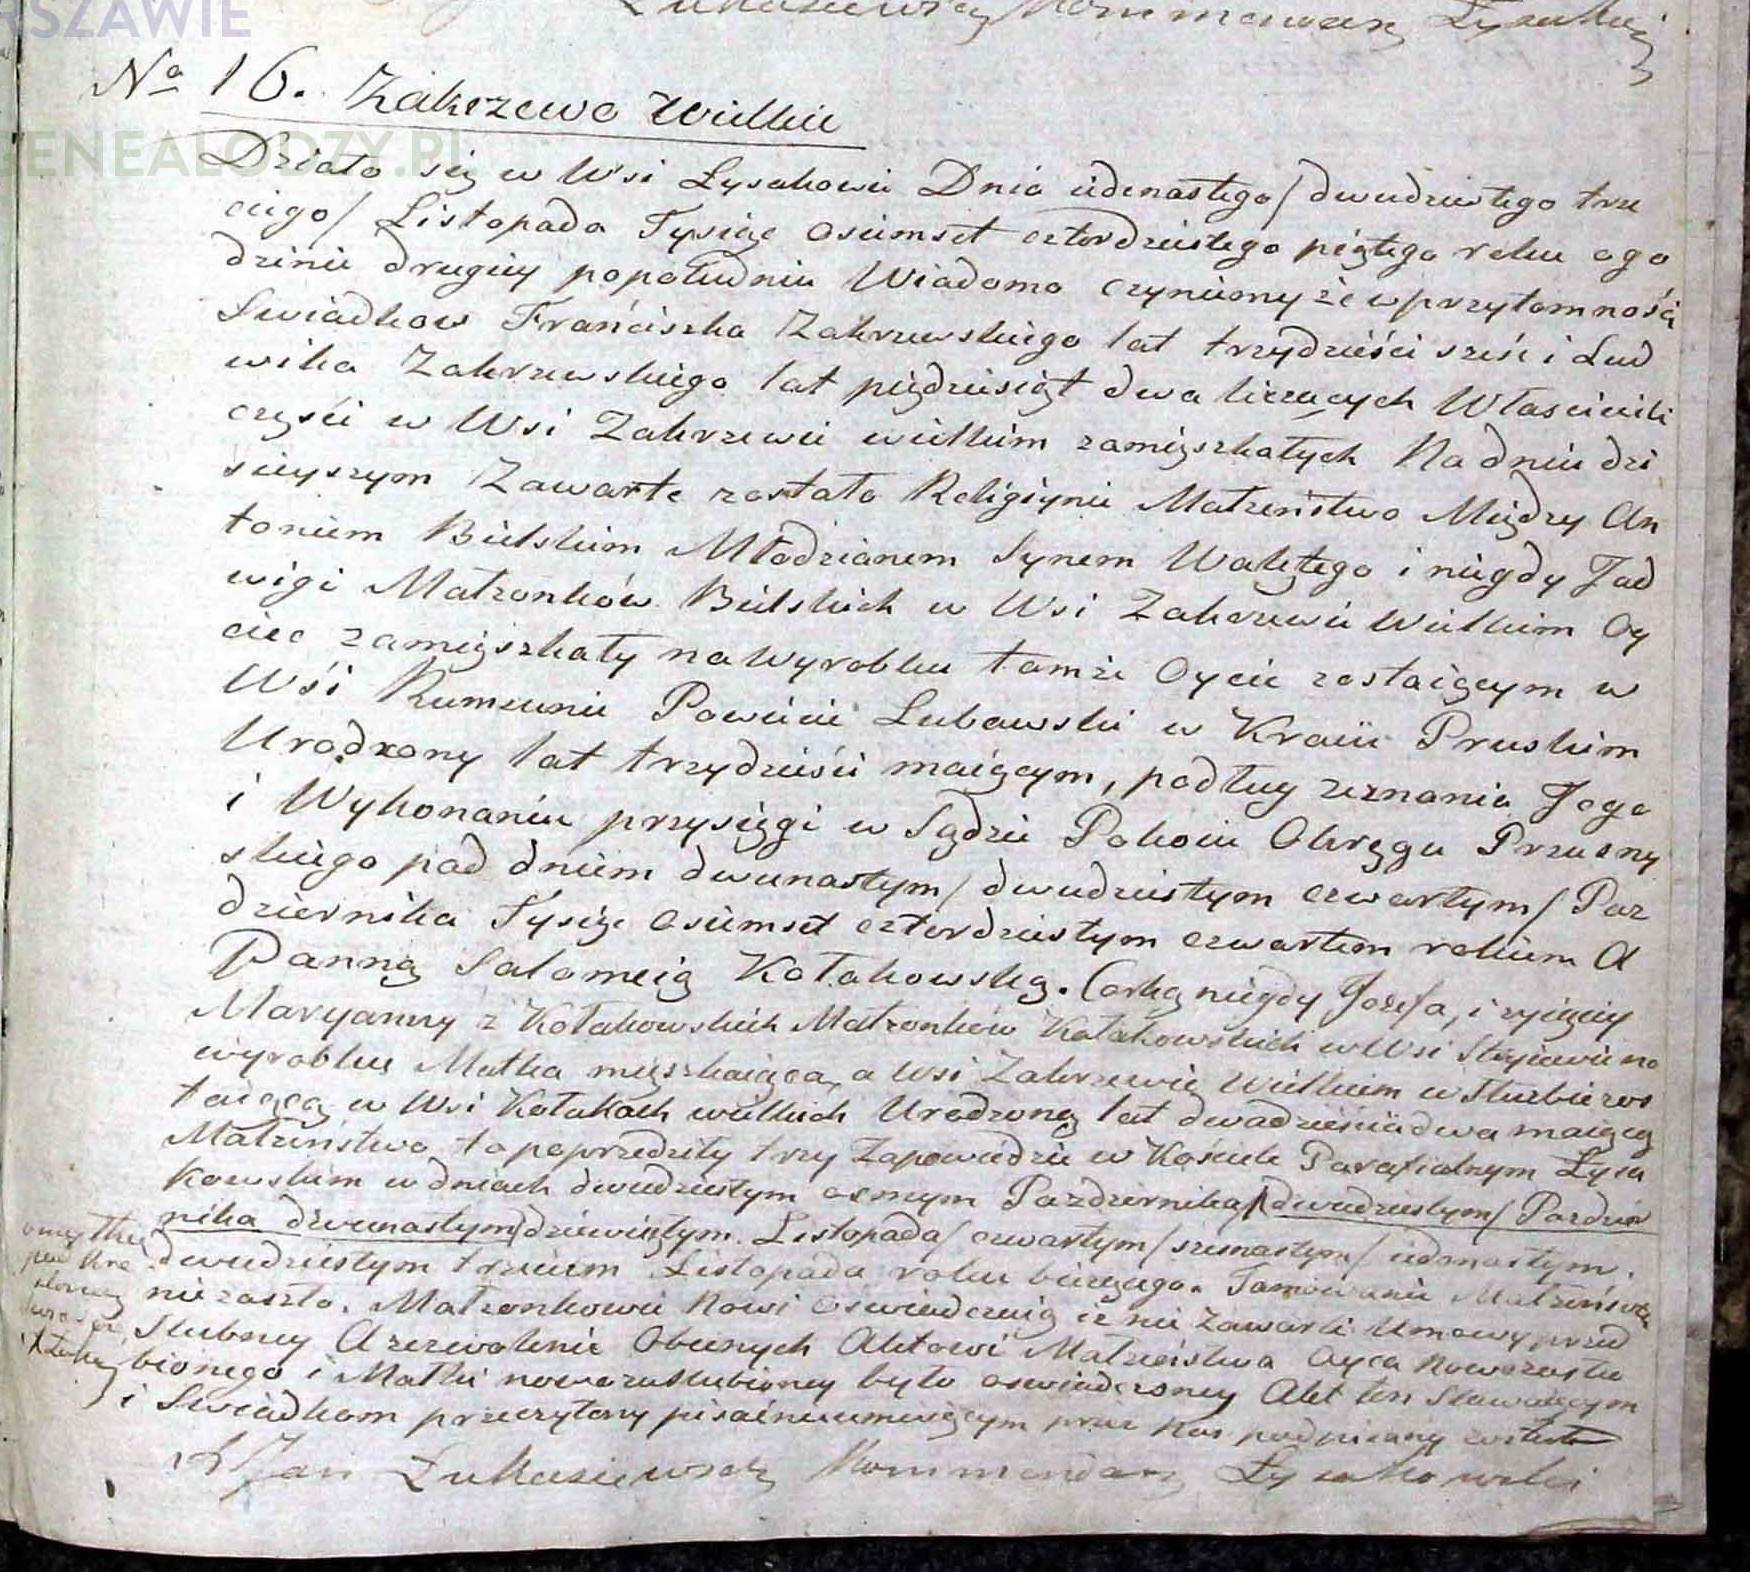 RSZAWIE
GENEALODZY.PL
Łukasiewicz Kommendarz Łysakow
No 16. Zakrzewo Wielkie
Działo się w Wsi Łysakowie Dnia iedenastego / dwudziestego trze
ciego / Listopada Tysiąc osiemset czterdziestego piątego roku o go
dzinie drugiey popołudniu Wiadomo czyniemy że w przytomności
Swiadkow Franciszka Zakrzewskiego lat trzydzieści sześć i Lud
wika Zakrzewskiego lat piędziesiąt dwa liczących Właścicieli
części w Wsi Zakrzewie wielkim zamięszkałych Na dniu dzi
sieyszym Zawarte zostało Religiynie Małżeństwo Między An
tonim Bielskim Młodzianem Synem Walętego i niegdy Jad
wigi Małżonków Bielskich w Wsi Zakrzewie Wielkim Oy
ciec zamięszkały na Wyrobku tamże Oycie zostaiącym w
Wśi Rumunie Powiecie Lubawski w Kraiu Pruskim
Urodzony lat trzydzieści maiącym, podług zeznania Jego
i Wykonaniu przysięgi w Sądzie Pokoiu Okręgu Przasny
skiego pod dniem dwunastym / dwudziestym czwartym / Paz
dziernika Tysiąc osiemset czterdziestym czwartem rokiem A
Panną Salomeią Kołakowską. Corką niegdy Jozefa, i żyiącey
Maryanny z Kołakowskich Małżonków Kołakowskich w Wsi na
wyrobku Matka mięszkaiąca, a Wsi Zakrzewie Wielkiem w Służbie zos
taiącą w Wsi Kołakach wielkich Urodzoną lat dwadzieścia dwa maiącą
Małżeństwo to poprzedziły trzy Zapowiedzie w Kościele Parafialnym Łysa
kowskim w dniach dwudziestym osmym Pazdziernika / dwudziestym / Pazdzier
nika dwunastym / dziewiątym Listopada / czwartym / szesnastym / iedenastym.
dwudziestym trzeciem Listopada roku bieżącego. Tamowanie Małżeństwa
nie zaszło. Małżonkowie Nowi oświadczaią iż nie Zawarli Umowy przed
Slubney A zezwolenie Obecnych Aktowi Małżeństwa Oyca Nowozaślu
bionego i Matki nowozaślubioney było oswiadczoney Akt ten Stawaiącym
i Swiadkom przeczytany pisać nieumieiącym przez Nas podpisany został
omyłkę
X Jan Łukasiewicz Kommendarz Łysakowski